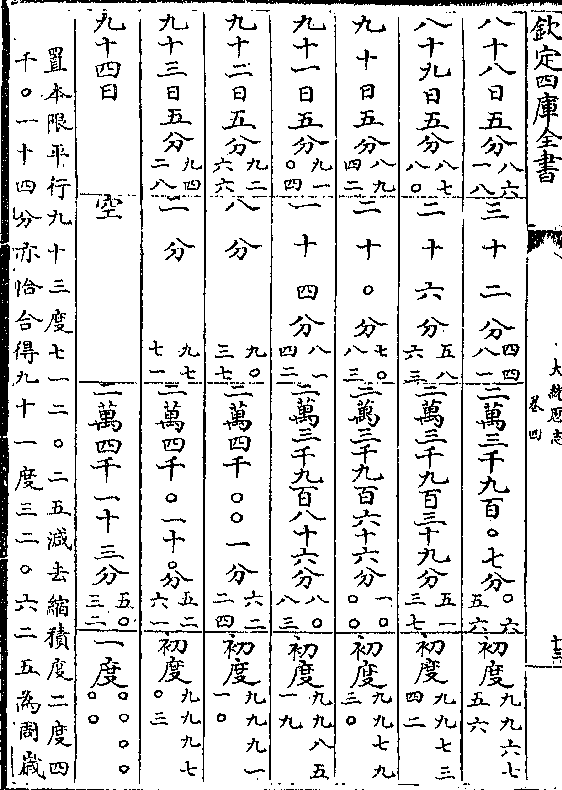 欽定四庫全書
大統歷志
卷四
十三
八十八日五分八六一八 三十二分四四八一 二萬三千九百〇七分〇六五六 初度九九六七五六
八十九日五分八七八〇 二十六分五八六三 二萬三千九百三十九分五一三七 初度九九七三四二
九十日五分八九四二 二十〇分七〇八三 二萬三千九百六十六分一〇〇〇 初度九九七九三〇
九十一日五分九一〇四 一十四分八一四二 二萬三千九百八十六分八〇八三 初度九九八五一九
九十二日五分九二六六 八分九〇三七 二萬四千〇〇一分六二二四 初度九九九一一〇
九十三日五分九四二八 二分九七七一 二萬四千〇一十〇分五二六一 初度九九九七〇三
九十四日 空 二萬四千一十三分五〇三二 一度〇〇〇〇〇〇
置本限平行九十三度七一二〇二五減去縮積度二度四
千〇一十四分亦恰合得九十一度三二〇六二五為周歲